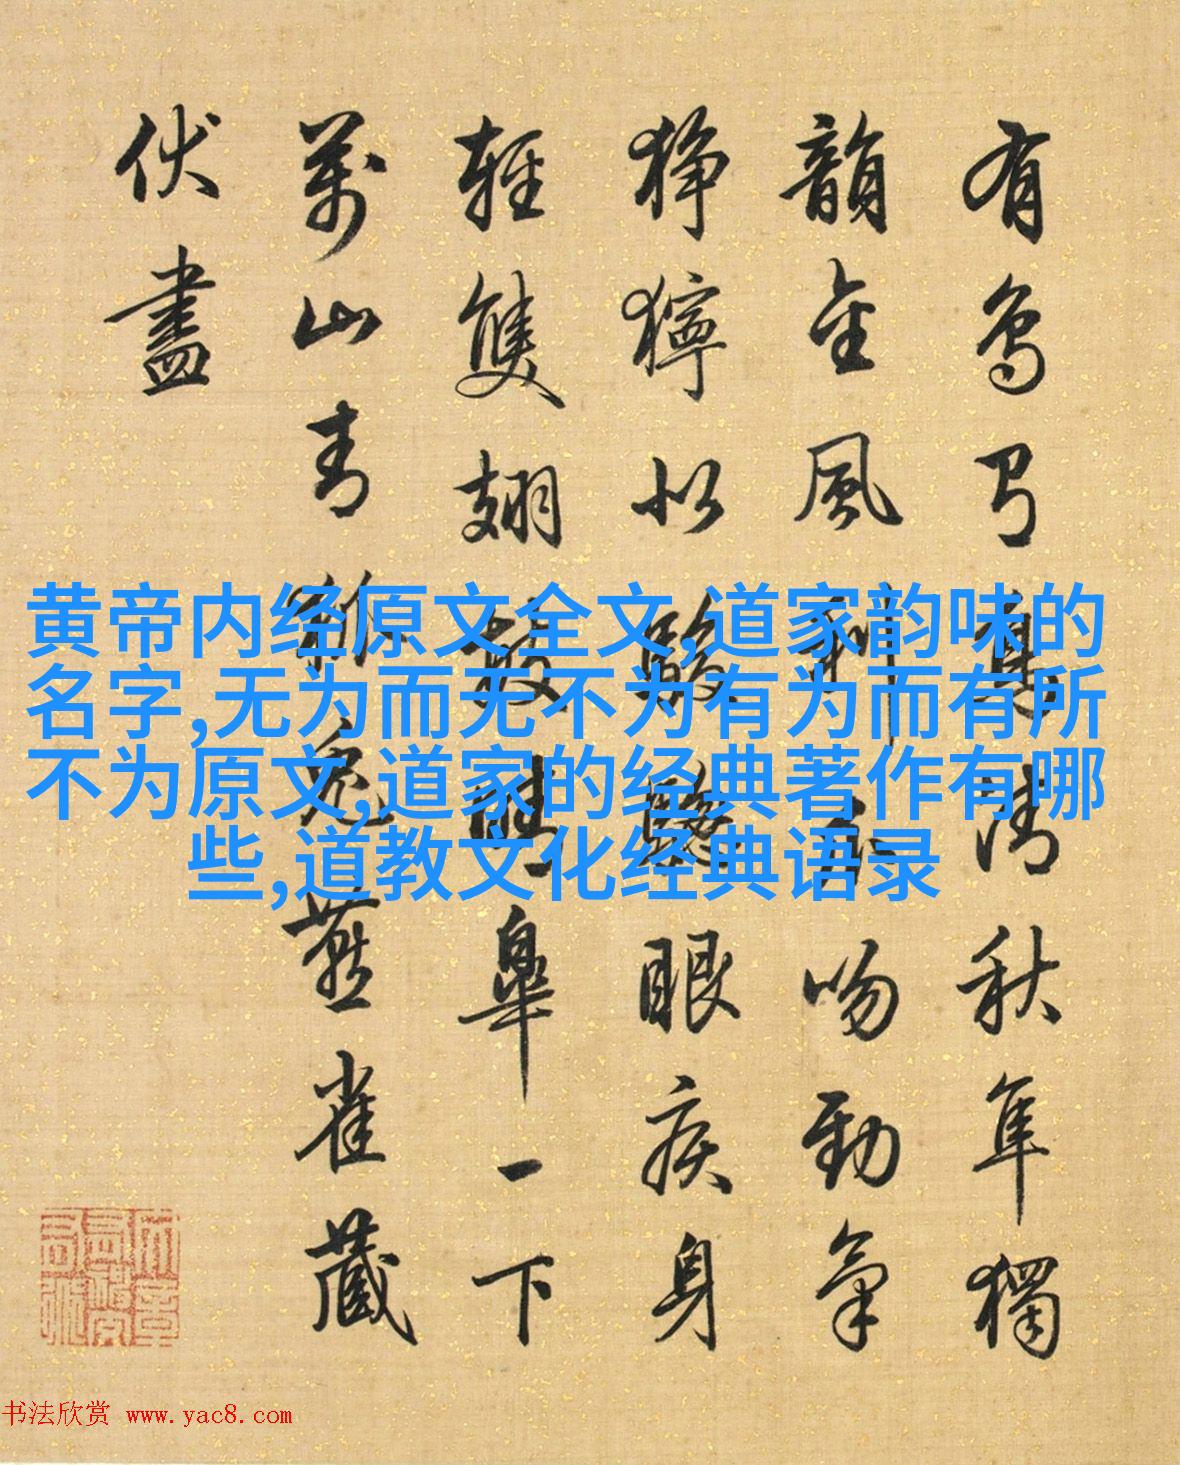 有鳥清秋隼獨
韻金風利吻勁氣
猙獰似眼疾身
輕雙翅皋一下
萬山青兔燕雀藏
伏盡
黄帝内经原文全文,道家韵味的
名字,无为而无不为有为而有所
不为原文,道家的经典著作有哪
些,道教文化经典语录
书法欣赏 www.yac8.com